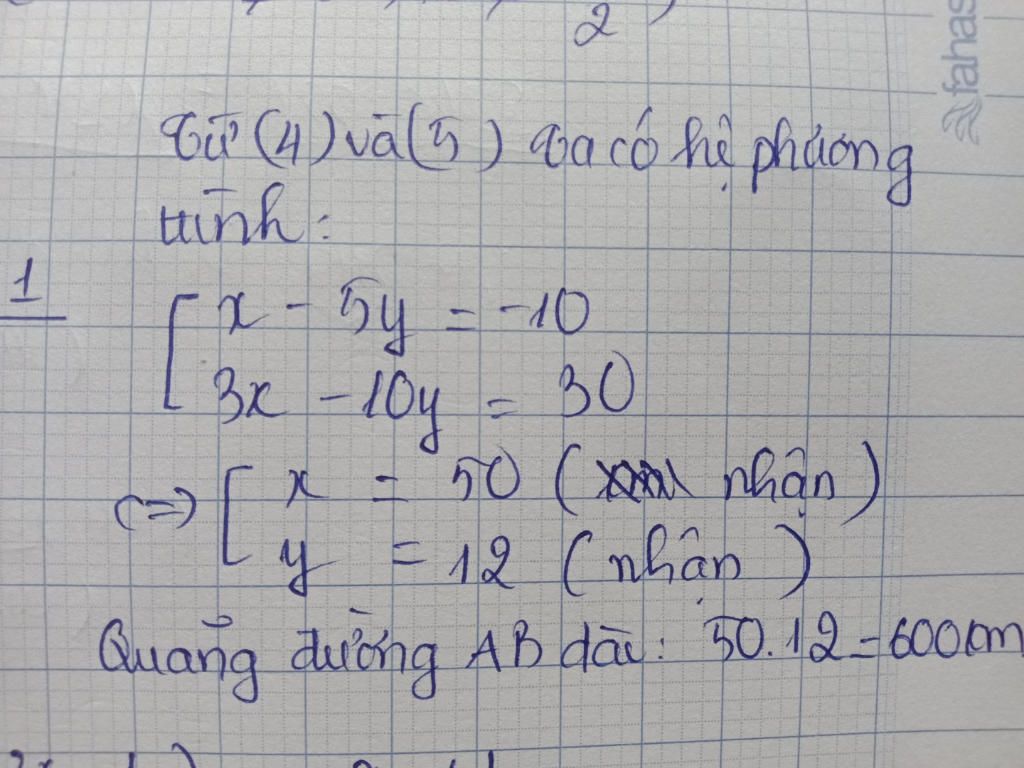 2
fahas
Từ (4) và (5) ta có hệ phương
trình:
1
x - 5y = -10
3x - 10y = 30
<=> x = 50 ( nhận )
y = 12 ( nhận )
Quãng đường AB dài: 50.12 = 600cm